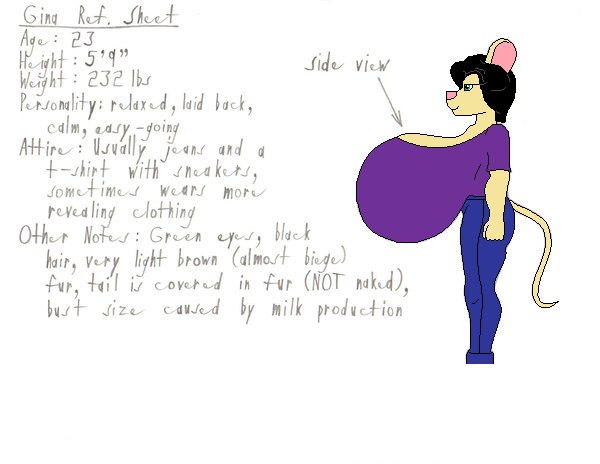 Gina Ref. Sheet
Age: 23
Height: 5'9"
Weight: 232 lbs
Personality: relaxed, laid back,
calm, easy-going
Attire: Usually jeans and a
t-shirt with sneakers,
sometimes wears more
revealing clothing
Other Notes: Green eyes, black
hair, very light brown (almost biege)
fur, tail is covered in fur (NOT naked),
bust size caused by milk production
side view